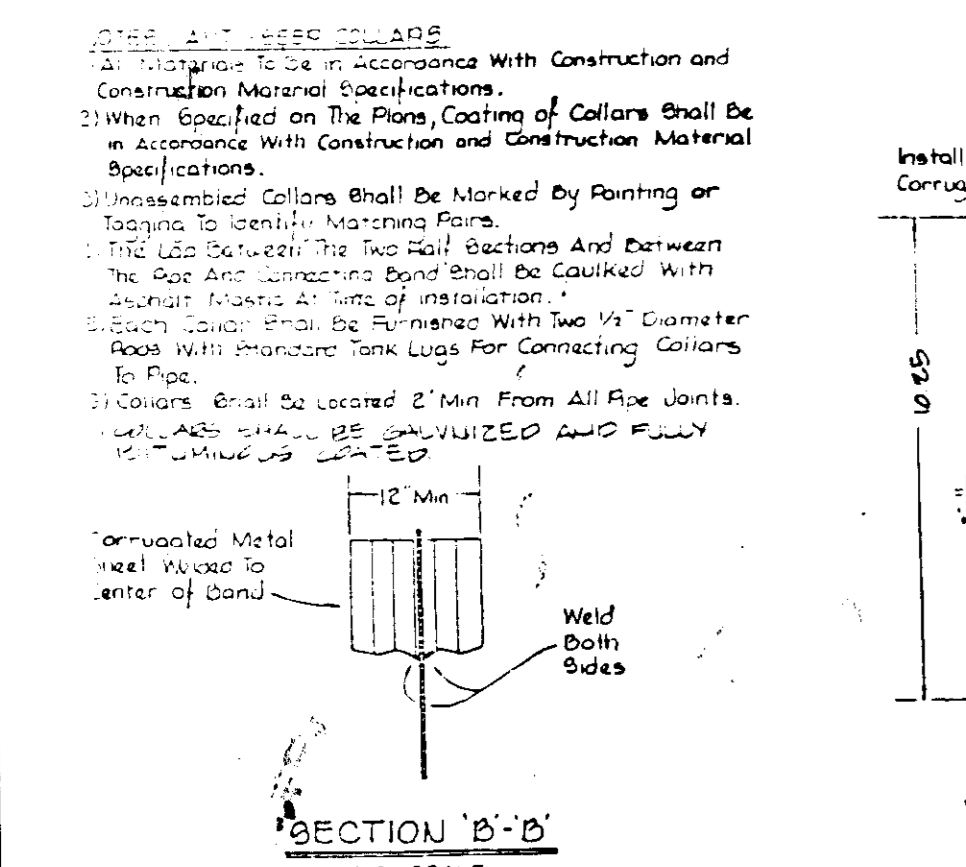 NOTES: ANTI-SEEP COLLARS
All Materials To Be in Accordance With Construction and
Construction Material Specifications.
2) When Specified on The Plans, Coating of Collars Shall Be
in Accordance With Construction and Construction Material
Specifications.
3) Unassembled Collars Shall Be Marked By Painting or
Tagging To Identify Matching Pairs.
The Lap Between The Two Half Sections And Between
The Pipe And Connecting Band Shall Be Caulked With
Asphalt Mastic At Time of installation.
Each Collar Shall Be Furnished With Two 1/2" Diameter
Rods With Standard Tank Lugs For Connecting Collars
To Pipe.
Collars Shall Be Located 2' Min From All Pipe Joints.
COLLARS SHALL BE GALVNIZED AND FULLY
BITUMINOUS COATED.
12" Min
Corrugated Metal
Sheet Welded To
Center of Band
Weld
Both
Sides
SECTION 'B'-'B'
Install
Corrug